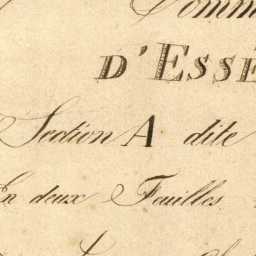 Comm
D'ESSE
Section A dite
En deux Feuilles